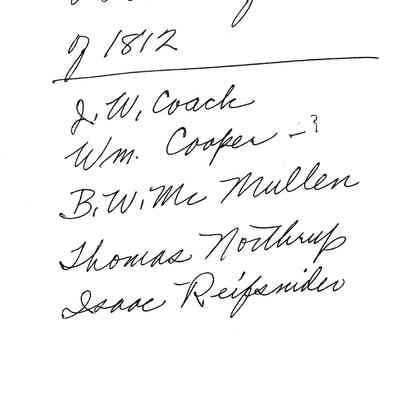 of 1812
J. W. Coack
Wm. Cooper -
B. W. Mc Mullen
Thomas Northrup
Isaac Reifsnider